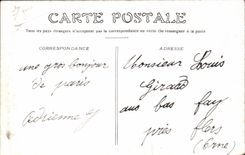 CARTE POSTALE
Tous les pays étrangers n'acceptent pas la correspondance au recto (se renseigner à la poste)
CORRESPONDANCE
ADRESSE
une gros bonjour
de paris
Adrienne
Monsieur Louis
Girard
aux bas fay
près flers
(Orne)